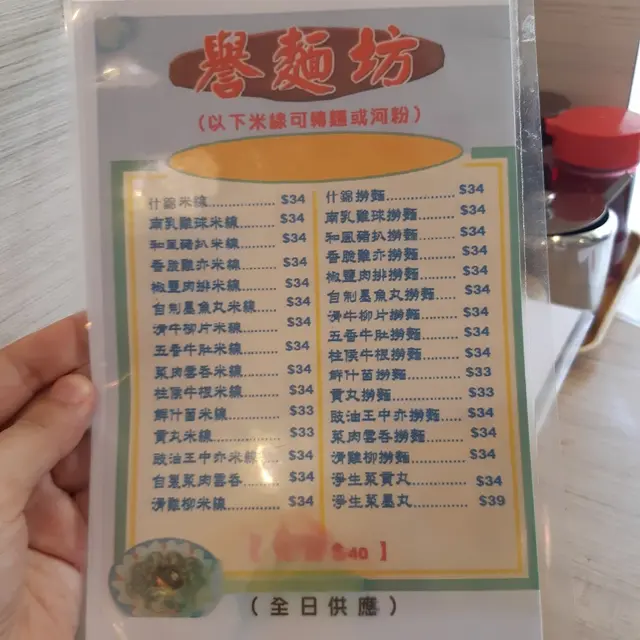 譽麵坊
（以下米線可轉麵或河粉）
什錦米線 $34
南乳雞球米線 $34
和風豬扒米線 $34
香脆雞亦米線 $34
椒鹽肉排米線 $34
自制墨魚丸米線 $34
滑牛柳片米線 $34
五香牛肚米線 $34
菜肉雲吞米線 $34
柱侯牛根米線 $34
鮮什菌米線 $33
貢丸米線 $33
豉油王中亦米線 $34
自製菜肉雲吞 $34
滑雞柳米線 $34
什錦撈麵 $34
南乳雞球撈麵 $34
和風豬扒撈麵 $34
香脆雞亦撈麵 $34
椒鹽肉排撈麵 $34
自制墨丸撈麵 $34
滑牛柳片撈麵 $34
五香牛肚撈麵 $34
柱侯牛根撈麵 $34
鮮什菌撈麵 $33
貢丸撈麵 $33
豉油王中亦撈麵 $34
菜肉雲吞撈麵 $34
滑雞柳撈麵 $34
淨生菜貢丸 $34
淨生菜墨丸 $39
【 $40 】
（全日供應）